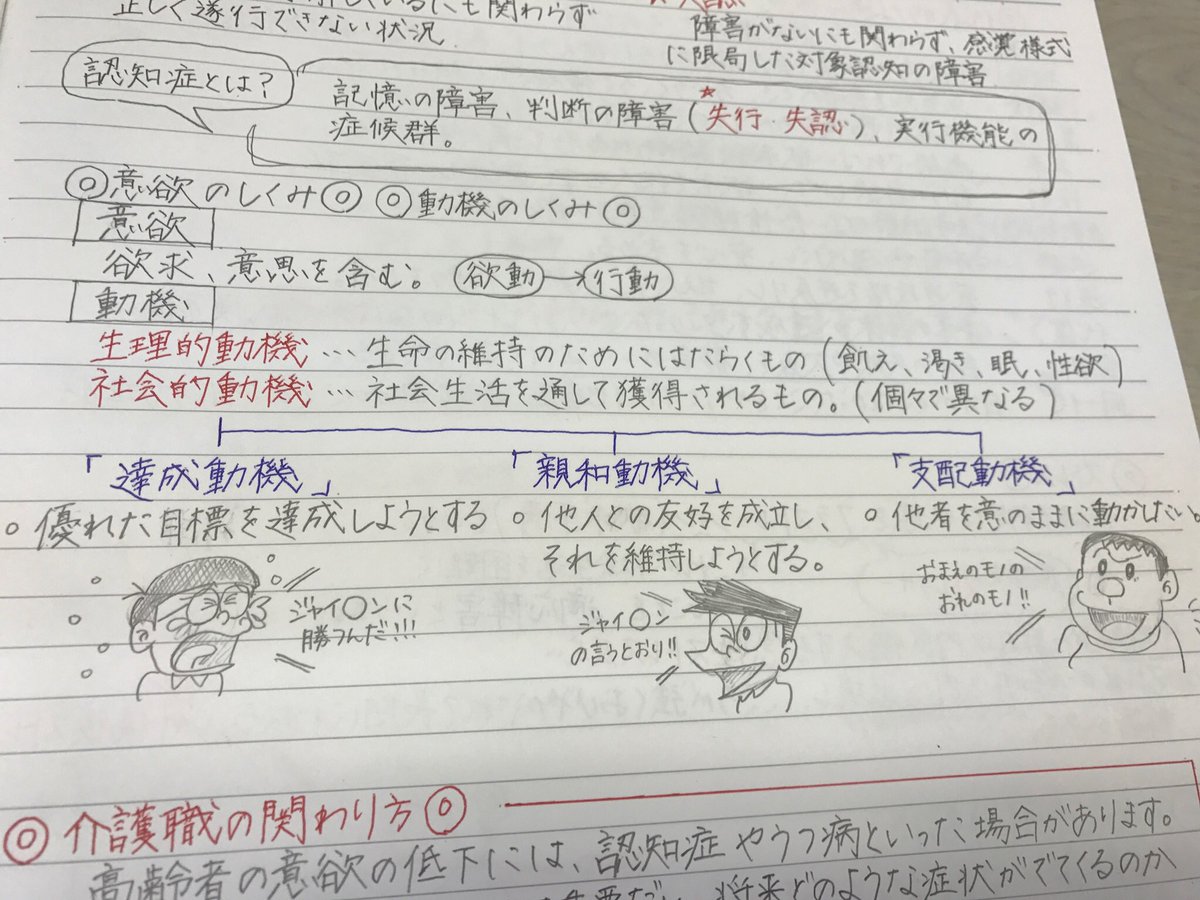 正しく遂行できない状況
障害がないにも関わらず、感覚様式
に限局した対象認知の障害
認知症とは?
記憶の障害、判断の障害(失行・失認)、実行機能の
症候群。
◎意欲のしくみ◎ ◎動機のしくみ◎
意欲
欲求、意思を含む。 欲動→行動
動機
生理的動機…生命の維持のためにはたらくもの(飢え、渇き、眠、性欲)
社会的動機…社会生活を通して獲得されるもの。(個々で異なる)
「達成動機」 「親和動機」 「支配動機」
○優れた目標を達成しようとする ○他人との友好を成立し、 ○他者を意のままに動かしたい。
それを維持しようとする。
ジャイ○ンに
勝つんだ!!!
ジャイ○ン
の言うとおり!!
おまえのモノの
おれのモノ!!
◎介護職の関わり方◎
高齢者の意欲の低下には、認知症やうつ病といった場合があります。
将来どのような症状がでてくるのか